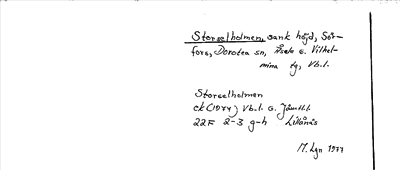 Storselholmen, sank höjd, Sör-
fors, Dorotea sn, Åsele o. Vilhel-
mina tg, Vb.l.
Storselholmen
ck (1974) Vb.l. o. Jämtl.l.
22F 2-3 g-h Lillånäs
M. Lgn 1977